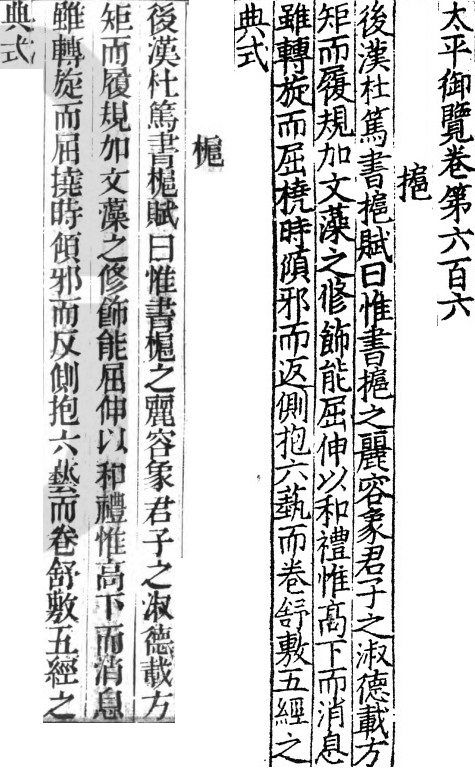 太平御覽卷第六百六
摢
後漢杜篤書摢賦曰惟書摢之麗容象君子之淑德載方
矩而履規加文藻之脩飾能屈伸以和禮惟髙下而消息
雖轉旋而屈橈時傾邪而返側抱六藝而卷舒敷五經之
典式
槴
後漢杜篤書槴賦曰惟書槴之麗容象君子之淑德載方
矩而履規加文藻之修飾能屈伸以和禮惟高下而消息
雖轉旋而屈撓時傾邪而反側抱六藝而卷舒敷五經之
典式